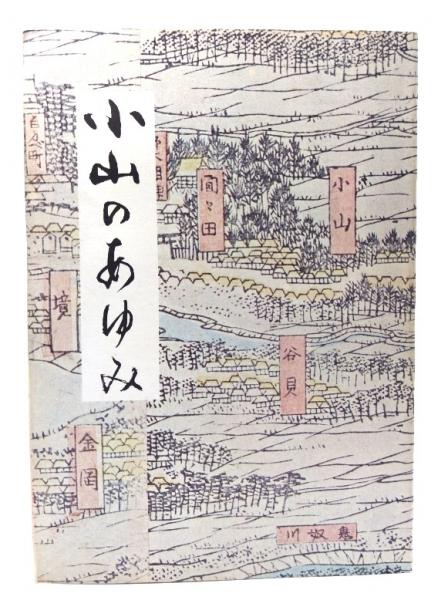 小山のあゆみ
小山
間々田
谷貝
境
金岡
鬼奴川